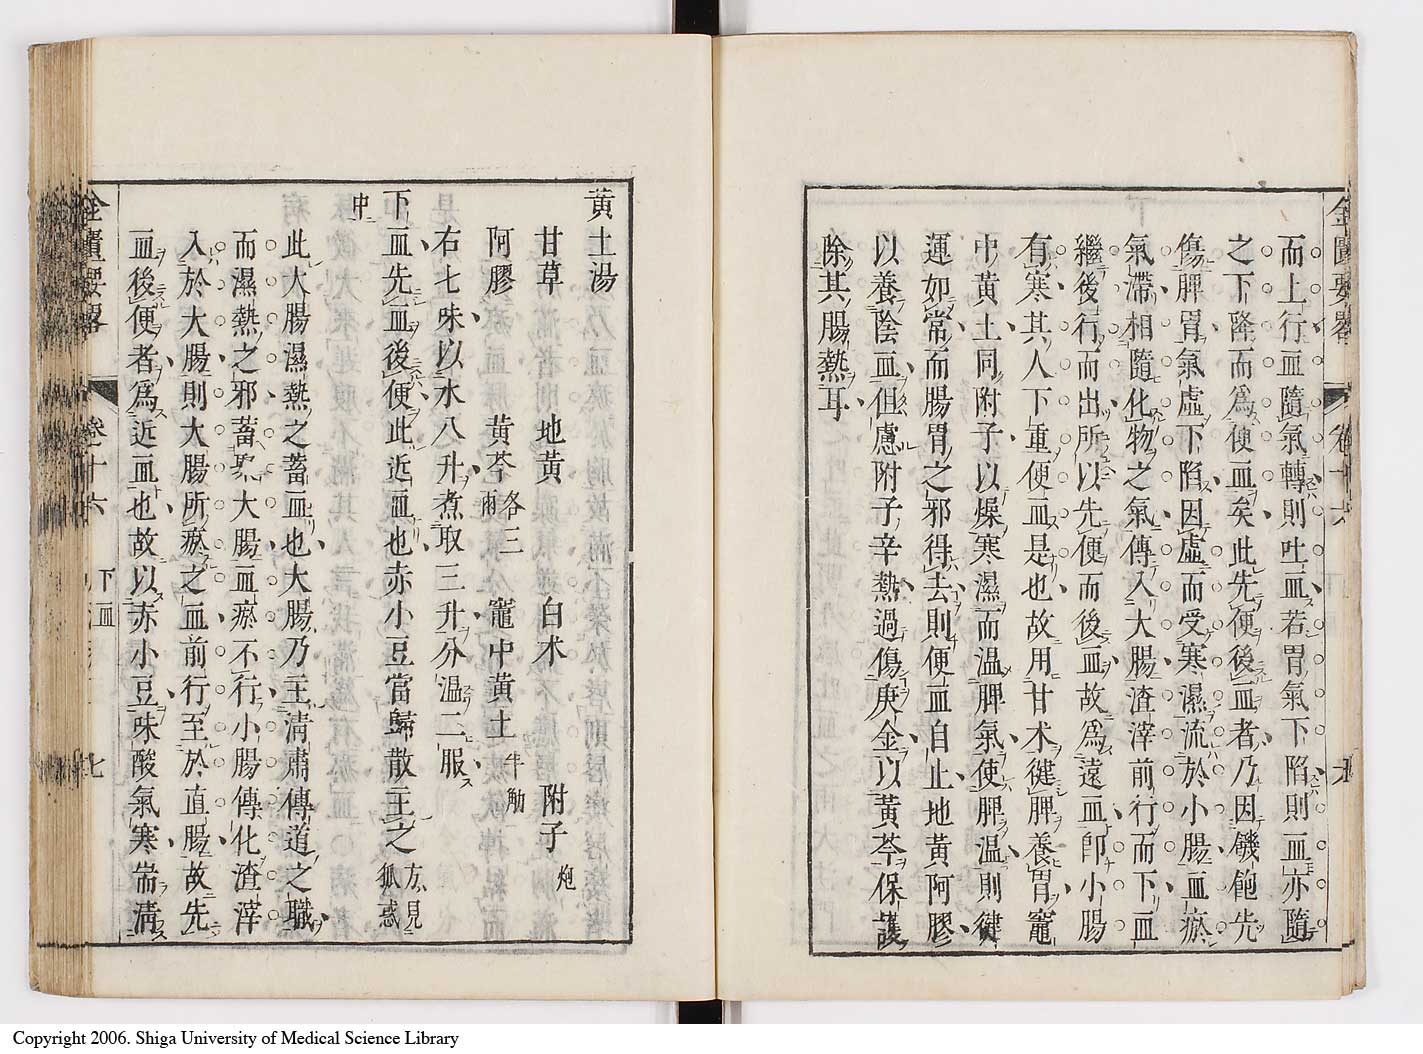 金匱要畧 卷十六
而上行血隨氣轉則吐血若胃氣下陷則血亦隨
之下降而爲便血矣此先便後血者乃因饑飽先
傷脾胃氣虛下陷因虛而受寒濕流於小腸血瘀
氣滯相隨化物之氣傳入大腸渣滓前行而下血
繼後行而出所以先便而後血故爲遠血卽小腸
有寒其人下重便血是也故用甘术健脾養胃竈
中黃土同附子以燥寒濕而温脾氣使脾温則健
運如常而腸胃之邪得去則便血自止地黃阿膠
以養陰血但慮附子辛熱過傷庚金以黃芩保護
除其腸熱耳
黃土湯
甘草 地黃 白术 附子炮
阿膠 黃芩各三兩 竈中黃土半觔
右七味以水八升煮取三升分温二服
下血先血後便此近血也赤小豆當歸散主之方見狐惑
中
此大腸濕熱之蓄血也大腸乃主清肅傳道之職
而濕熱之邪蓄聚大腸血瘀不行小腸傳化渣滓
入於大腸則大腸所瘀之血前行至於直腸故先
血後便者爲近血也故以赤小豆味酸氣寒耑淸
金匱要畧 卷十六 下血 七
Copyright 2006. Shiga University of Medical Science Library